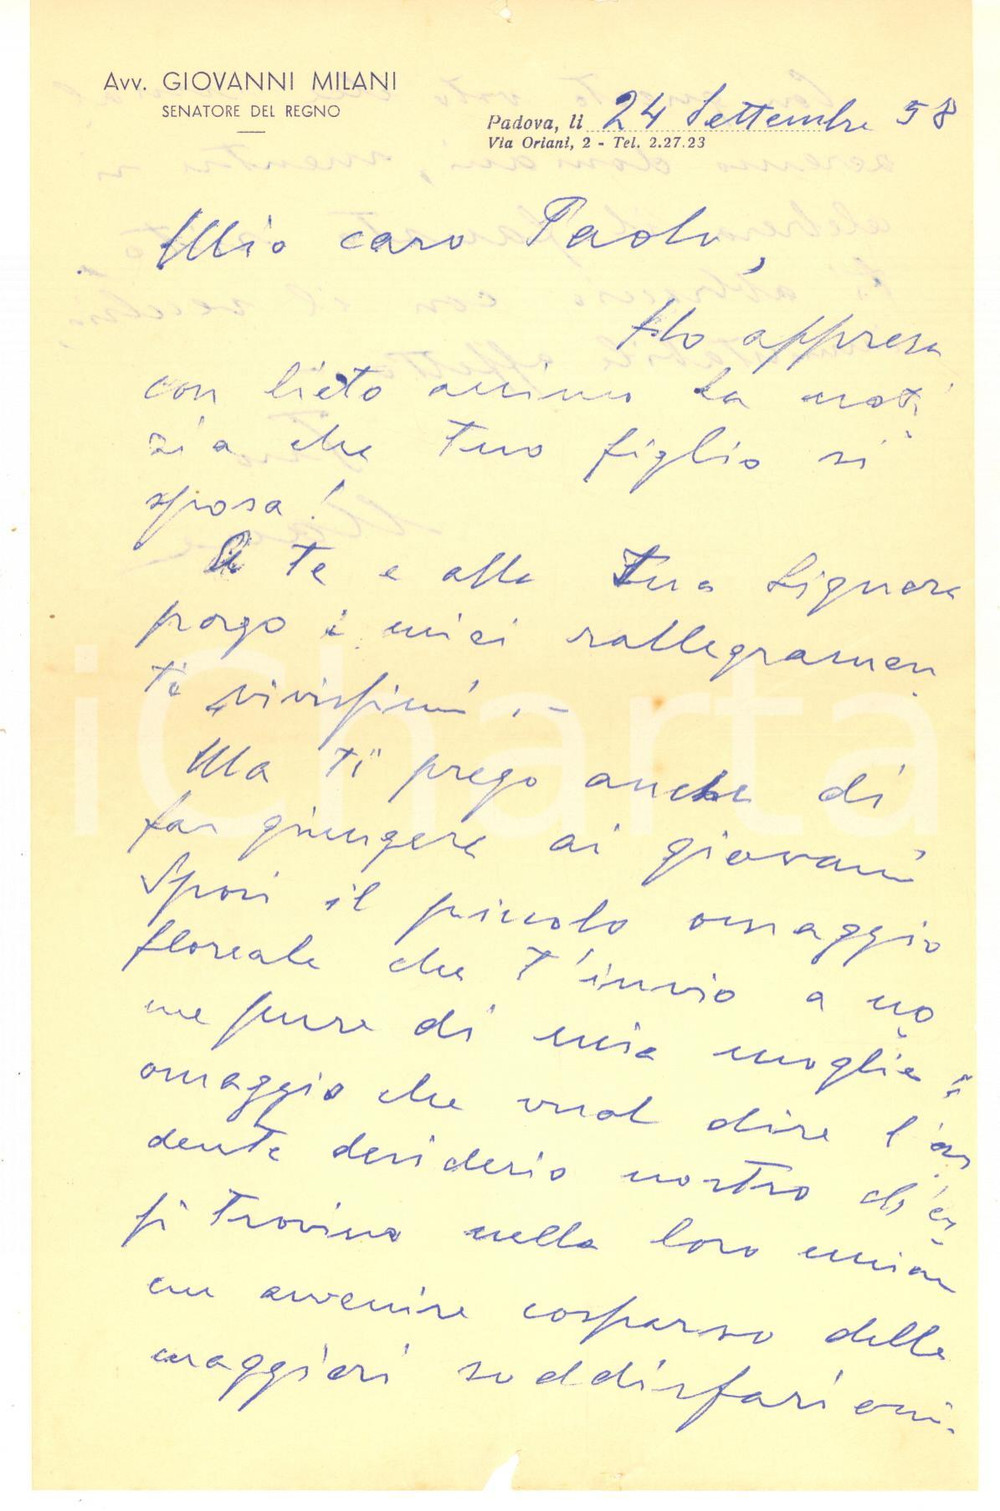 Avv. GIOVANNI MILANI
SENATORE DEL REGNO
Padova, li 24 Settembre 58
Via Oriani, 2 - Tel. 2.27.23
Mio caro Paolo,
Ho appreso
con lieto animo la noti
zia che tuo figlio si
sposa!
A te e alla Tua Signora
porgo i miei rallegramen
ti vivissimi. -
Ma ti prego anche di
far giungere ai giovani
Sposi il piccolo omaggio
floreale che t'invio a no
me pure di mia moglie:
omaggio che vuol dire l'ar
dente desiderio nostro ch'es
si trovino nella loro unione
un avvenire cosparso delle
maggiori soddisfazioni.
iCharta